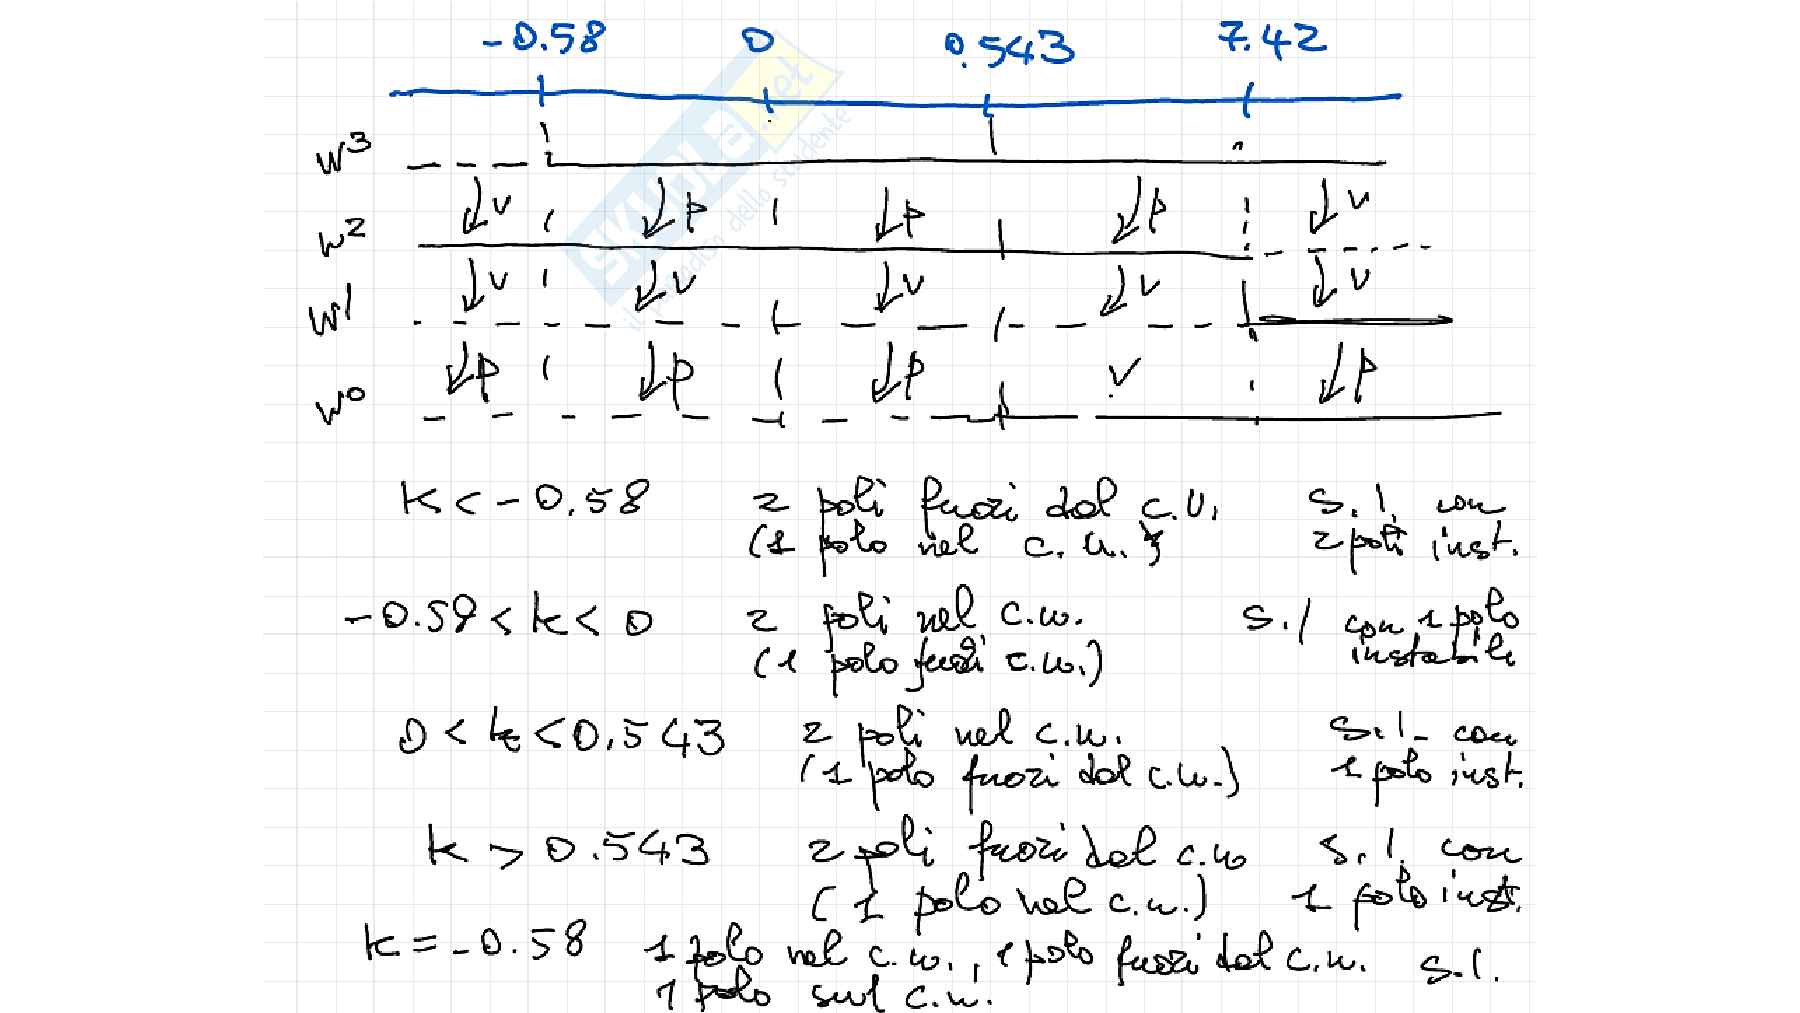 -0.58 0 0.543 7.42
w³
↓v ↓p ↓p ↓p ↓v
w²
↓v ↓v ↓v ↓v ↓v
w¹
↓p ↓p ↓p v ↓p
w⁰
k < -0.58 2 poli fuori dal c.u. s.l. con
(1 polo nel c.u.) 2 poli inst.
-0.58 < k < 0 2 poli nel c.u. s.l con 1 polo
(1 polo fuori c.u.) instabile
0 < k < 0.543 2 poli nel c.u. s.l. con
(1 polo fuori dal c.u.) 1 polo inst.
k > 0.543 2 poli fuori dal c.u s.l. con
(1 polo nel c.u.) 1 polo inst.
k = -0.58 1 polo nel c.u., 1 polo fuori dal c.u. s.l.
1 polo sul c.u.
SKUOLA.net
il paradiso dello studente